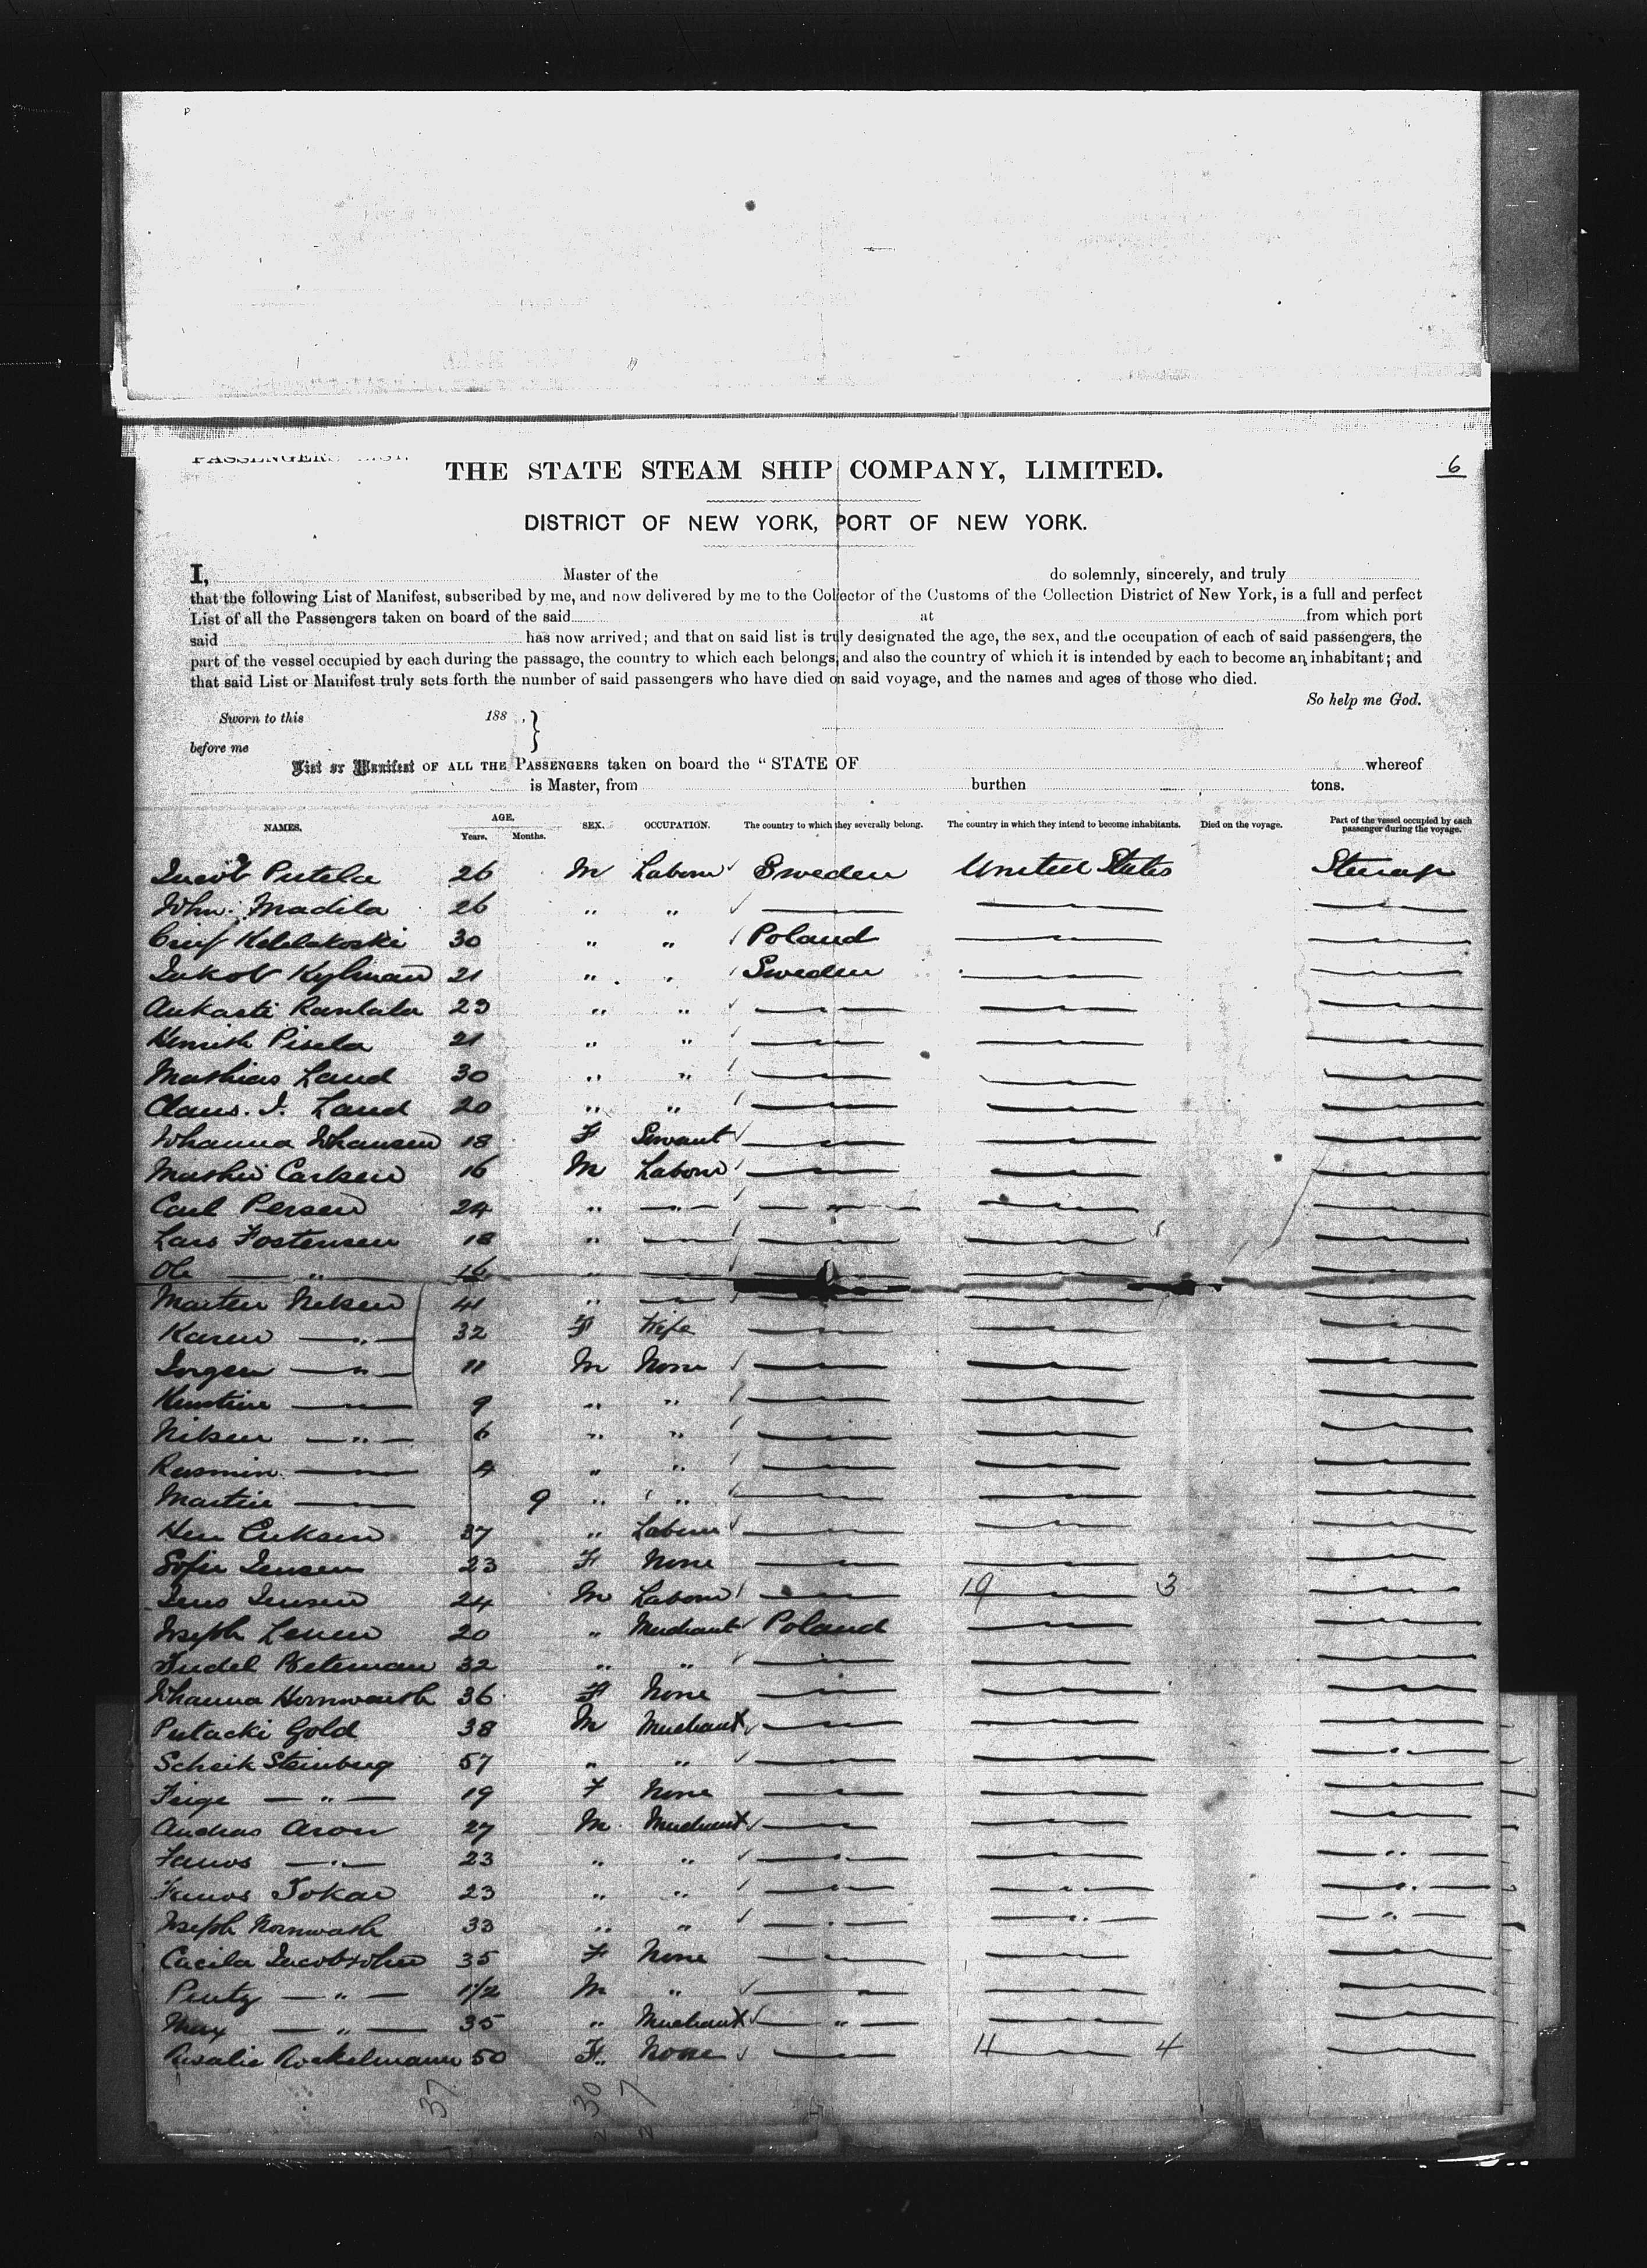 PASSENGERS LIST.
THE STATE STEAM SHIP COMPANY, LIMITED.
6
DISTRICT OF NEW YORK, PORT OF NEW YORK.
I, Master of the do solemnly, sincerely, and truly
that the following List of Manifest, subscribed by me, and now delivered by me to the Collector of the Customs of the Collection District of New York, is a full and perfect
List of all the Passengers taken on board of the said at from which port
said has now arrived; and that on said list is truly designated the age, the sex, and the occupation of each of said passengers, the
part of the vessel occupied by each during the passage, the country to which each belongs, and also the country of which it is intended by each to become an inhabitant; and
that said List or Manifest truly sets forth the number of said passengers who have died on said voyage, and the names and ages of those who died.
So help me God.
Sworn to this 188 . }
before me
List or Manifest OF ALL THE PASSENGERS taken on board the "STATE OF whereof
is Master, from burthen tons.
NAMES. AGE. Years. Months. SEX. OCCUPATION. The country to which they severally belong. The country in which they intend to become inhabitants. Died on the voyage. Part of the vessel occupied by each passenger during the voyage.
Jacob Putela 26 M Labour Sweden United States Steerage
John Madila 26 " "
30 " " Poland
Jakob Kylman 21 " " Sweden
23 " "
Pisela 21 " "
Mathias Land 30 " "
Claus. J. Land 20 " "
Johanna Johansen 18 F Servant
Carlsen 16 M Labour
Carl Persen 24 "
Lars Fostensen 18 "
Ole " 16 "
Marten Nilsen 41 "
Karen " 32 F Wife
Jorgen " 11 M None
9 " "
Nilsen " 6 " "
Rasmin 4 " "
Martin 9 " "
37 " Labour
Sofie Jensen 23 F None
Jens Jensen 24 M Labour 19 3
Joseph 20 " Merchant Poland
32 " "
Johanna 36 F None
Gold 38 M Merchant
Scheik Steinberg 57 " "
Feige " 19 F None
Andras Aron 27 M Merchant
" 23 " "
Tokar 23 " "
Joseph 33 " "
Cacila Jacobsohn 35 F None
" 1 1/2 M "
Max " 35 " Merchant "
Rosalie Rockelmann 50 F None 11 4
37 30 7